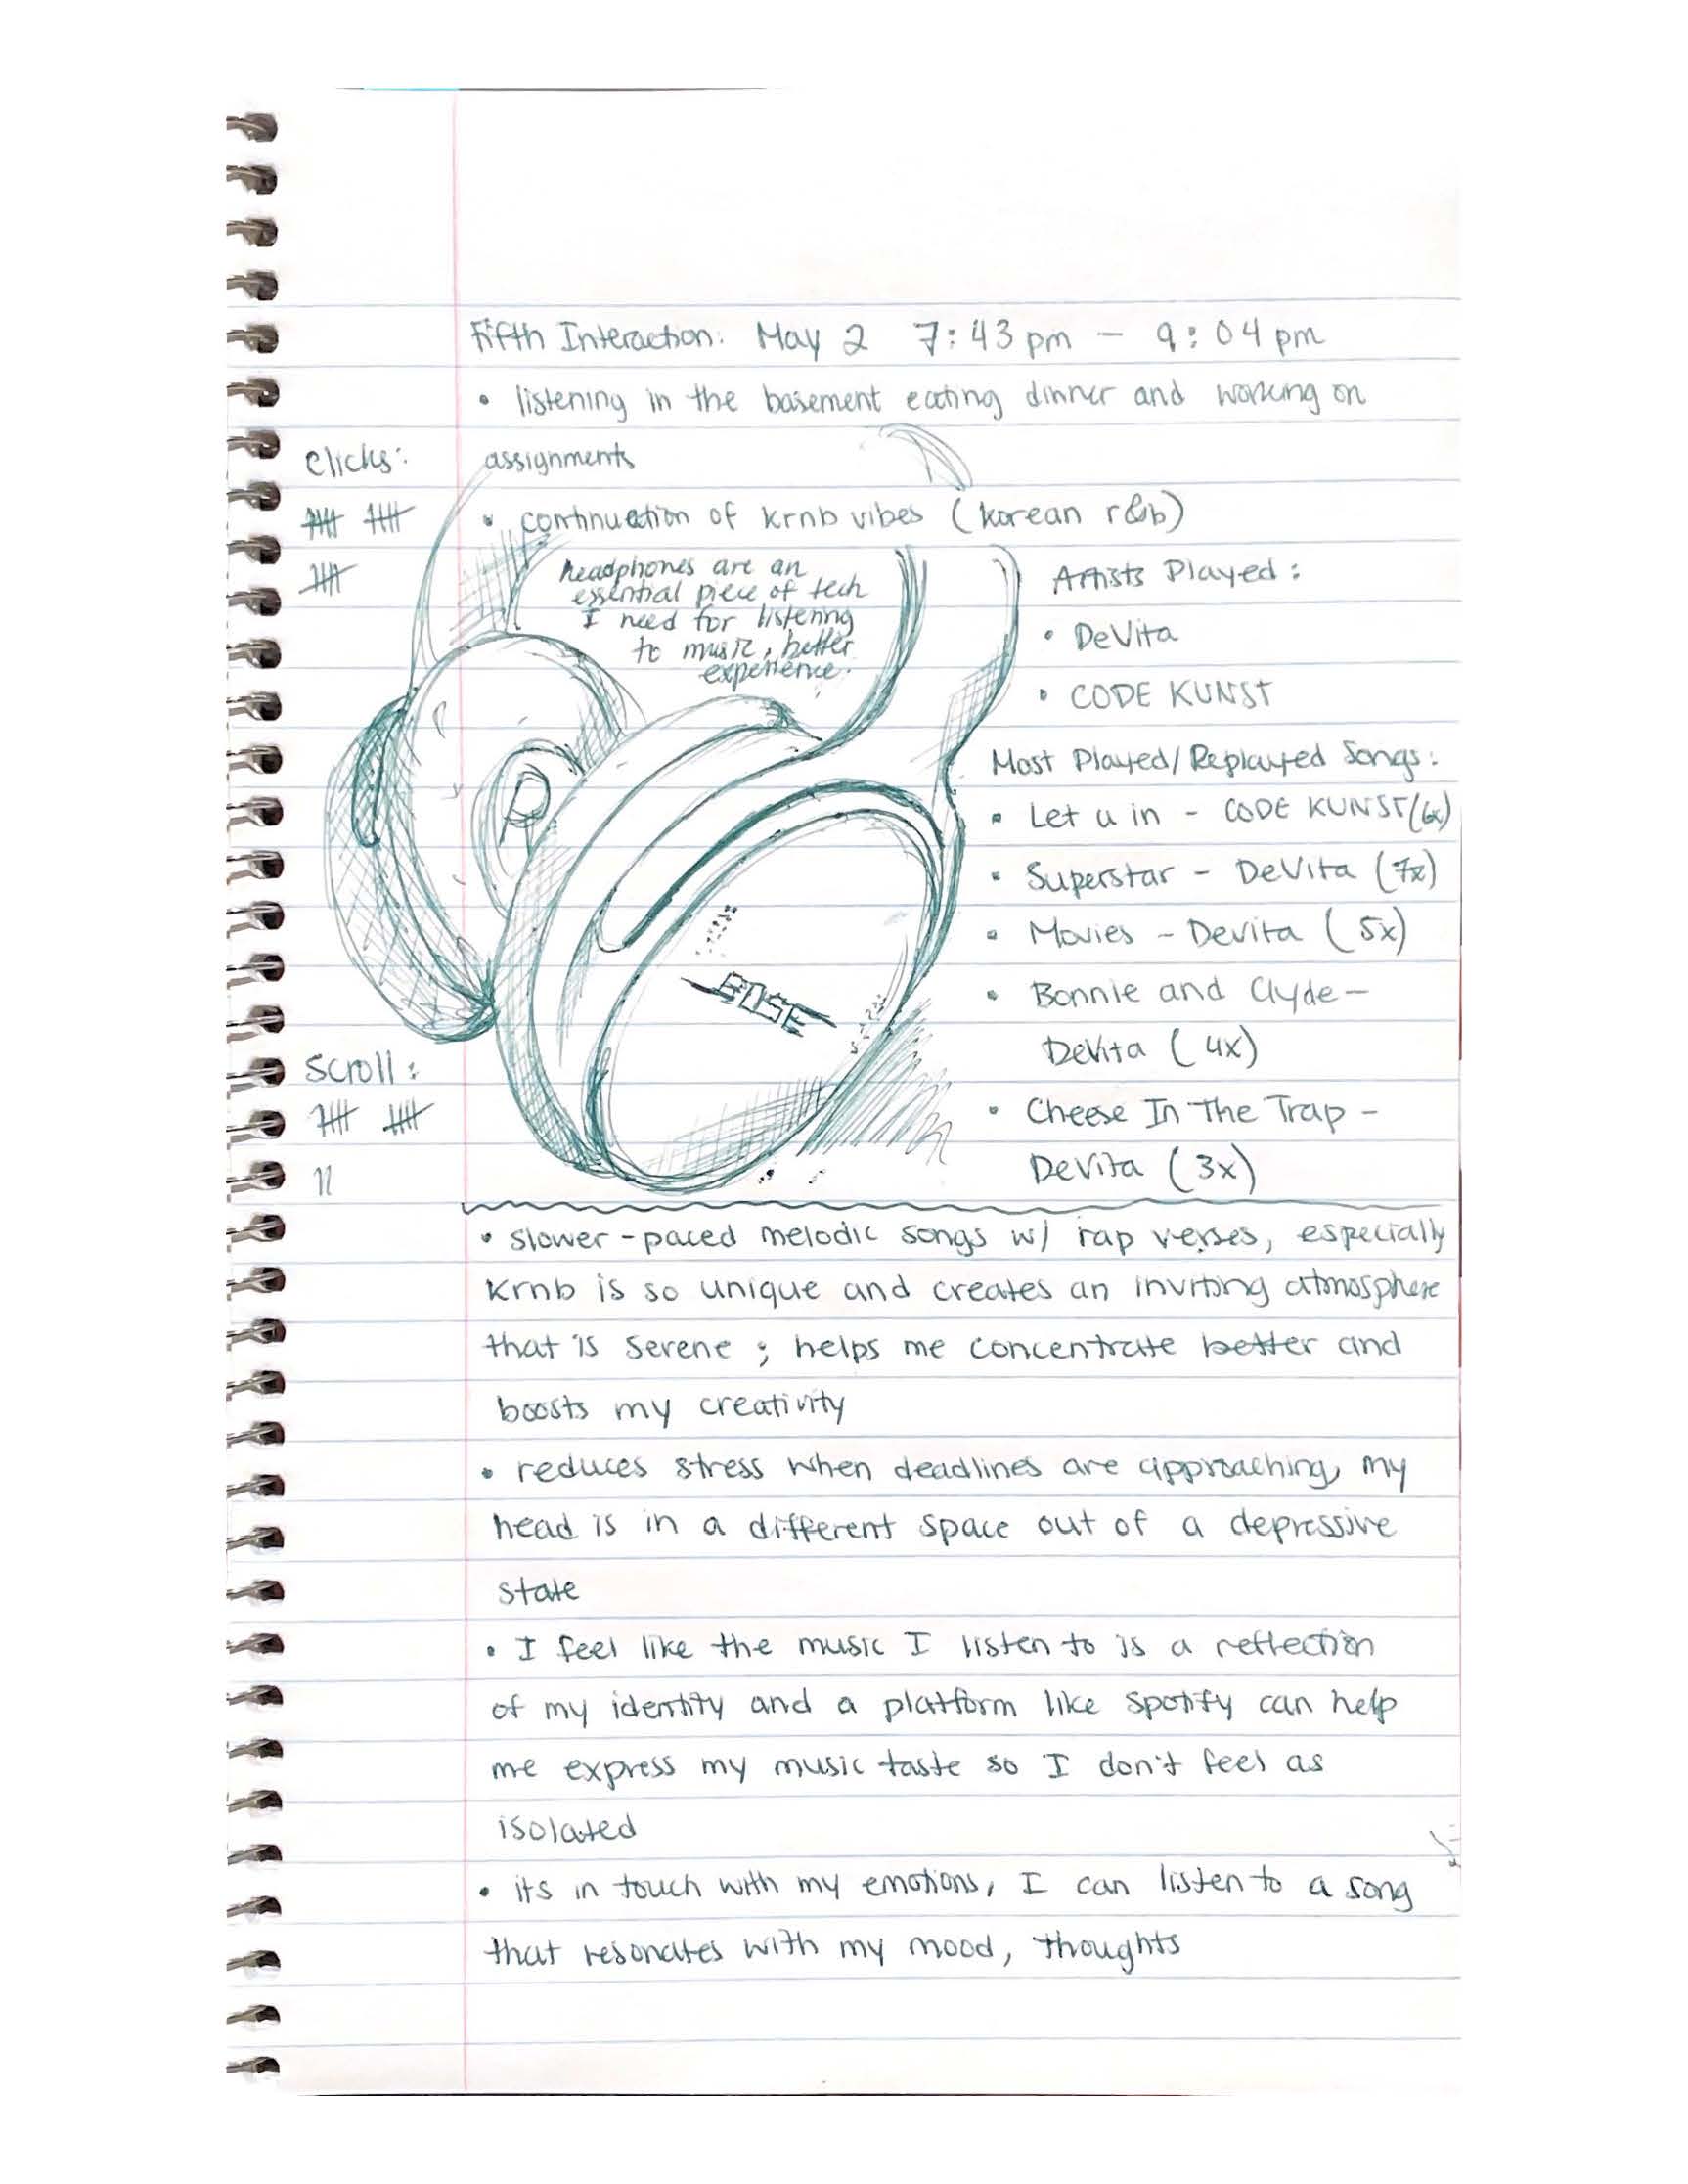 Fifth Interaction: May 2 7:43 pm – 9:04 pm
• listening in the basement eating dinner and working on
assignments
• continuation of krnb vibes (korean r&b)
Clicks:
卌 卌
卌
headphones are an
essential piece of tech
I need for listening
to music, better
experience.
Artists Played:
• DeVita
• CODE KUNST
Most Played/Replayed Songs:
• Let u in - CODE KUNST (6x)
• Superstar - DeVita (7x)
• Movies - Devita (5x)
• Bonnie and Clyde -
DeVita (4x)
• Cheese In The Trap -
DeVita (3x)
R
BOSE
Scroll:
卌 卌
II
• slower-paced melodic songs w/ rap verses, especially
krnb is so unique and creates an inviting atmosphere
that is serene ; helps me concentrate better and
boosts my creativity
• reduces stress when deadlines are approaching, my
head is in a different space out of a depressive
state
• I feel like the music I listen to is a reflection
of my identity and a platform like spotify can help
me express my music taste so I don't feel as
isolated
• its in touch with my emotions, I can listen to a song
that resonates with my mood, thoughts